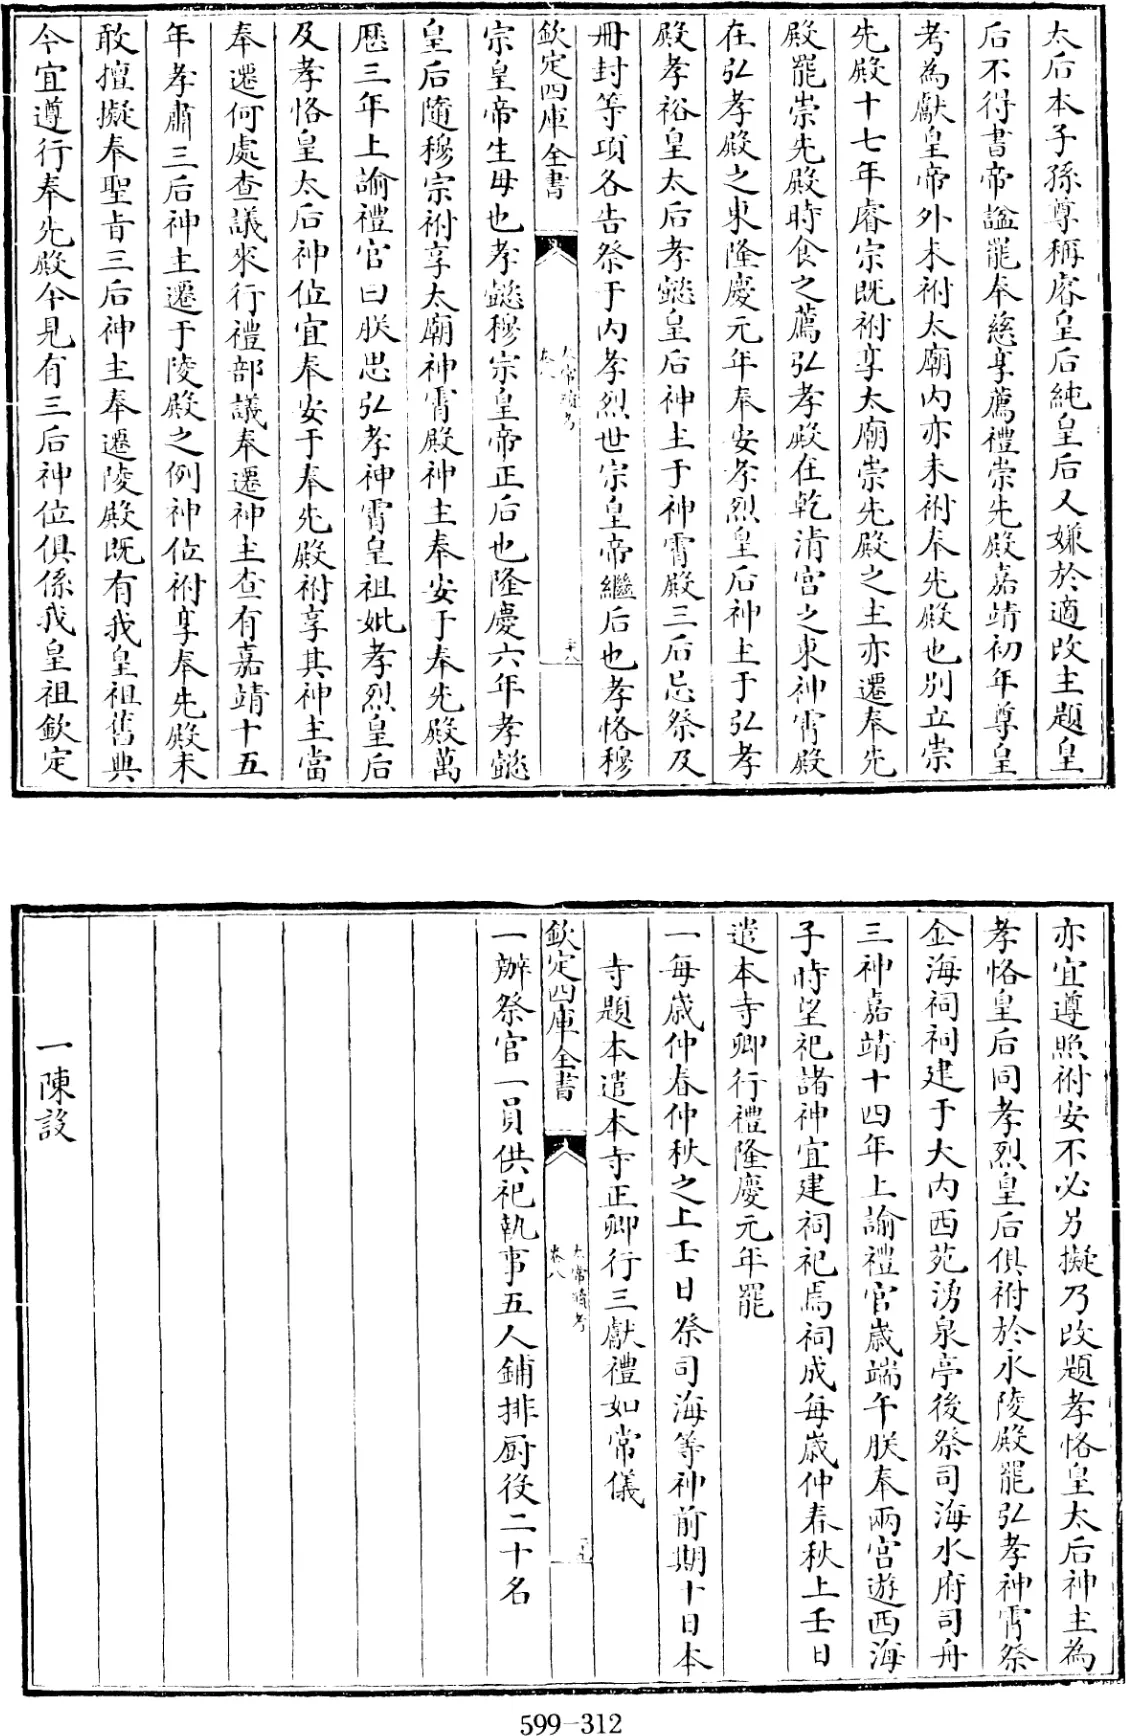 太后本子孫尊稱睿皇后純皇后又嫌於適改主題皇
后不得書帝諡罷奉慈享薦禮崇先殿嘉靖初年尊皇
考為獻皇帝外未祔太廟内亦未祔奉先殿也別立崇
先殿十七年睿宗既祔享太廟崇先殿之主亦遷奉先
殿罷崇先殿時食之薦弘孝殿在乾清宫之東神霄殿
在弘孝殿之東隆慶元年奉安孝烈皇后神主于弘孝
殿孝裕皇太后孝懿皇后神主于神霄殿三后忌祭及
冊封等項各告祭于内孝烈世宗皇帝繼后也孝恪穆
欽定四庫全書
太常續考
卷八
宗皇帝生母也孝懿穆宗皇帝正后也隆慶六年孝懿
皇后隨穆宗祔享太廟神霄殿神主奉安于奉先殿萬
歷三年上諭禮官曰朕思弘孝神霄皇祖妣孝烈皇后
及孝恪皇太后神位宜奉安于奉先殿祔享其神主當
奉遷何處查議來行禮部議奉遷神主查有嘉靖十五
年孝肅三后神主遷于陵殿之例神位祔享奉先殿未
敢擅擬奉聖旨三后神主奉遷陵殿既有我皇祖舊典
今宜遵行奉先殿今見有三后神位俱係我皇祖欽定
亦宜遵照祔安不必另擬乃改題孝恪皇太后神主為
孝恪皇后同孝烈皇后俱祔於永陵殿罷弘孝神霄祭
金海祠祠建于大内西苑湧泉亭後祭司海水府司舟
三神嘉靖十四年上諭禮官歲端午朕奉兩宫遊西海
子時望祀諸神宜建祠祀焉祠成每歲仲春秋上壬日
遣本寺卿行禮隆慶元年罷
一每歲仲春仲秋之上壬日祭司海等神前期十日本
寺題本遣本寺正卿行三獻禮如常儀
欽定四庫全書
太常續考
卷八
一辦祭官一員供祀執事五人鋪排厨役二十名
一陳設
599-312